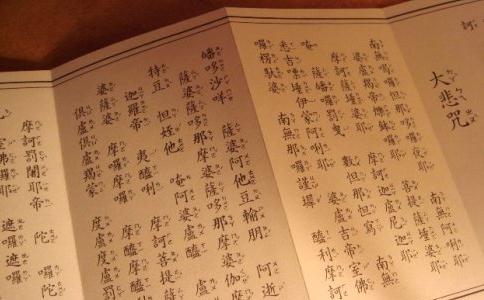 訶
大悲咒
南無喝囉怛那哆囉夜耶 南無阿唎耶
婆盧羯帝爍缽囉耶 菩提薩埵婆耶
摩訶薩埵婆耶 摩訶迦盧尼迦耶
唵 薩皤囉罰曳 數怛那怛寫 南無
悉吉嘌埵伊蒙阿唎耶 婆盧吉帝室佛
囉楞馱婆 南無那囉謹墀 醯利摩訶
皤哆沙咩 薩婆阿他豆輸朋 阿逝
薩婆薩哆那摩婆薩哆那摩婆伽 摩
特豆 怛姪他 唵阿婆盧醯 盧
迦羅帝 夷醯唎 摩訶菩提薩
婆薩婆 摩囉摩囉 摩醯摩醯唎
俱盧俱盧羯蒙 度盧度盧罰
摩訶罰闍耶帝 陀囉陀
室佛囉耶 遮囉遮囉